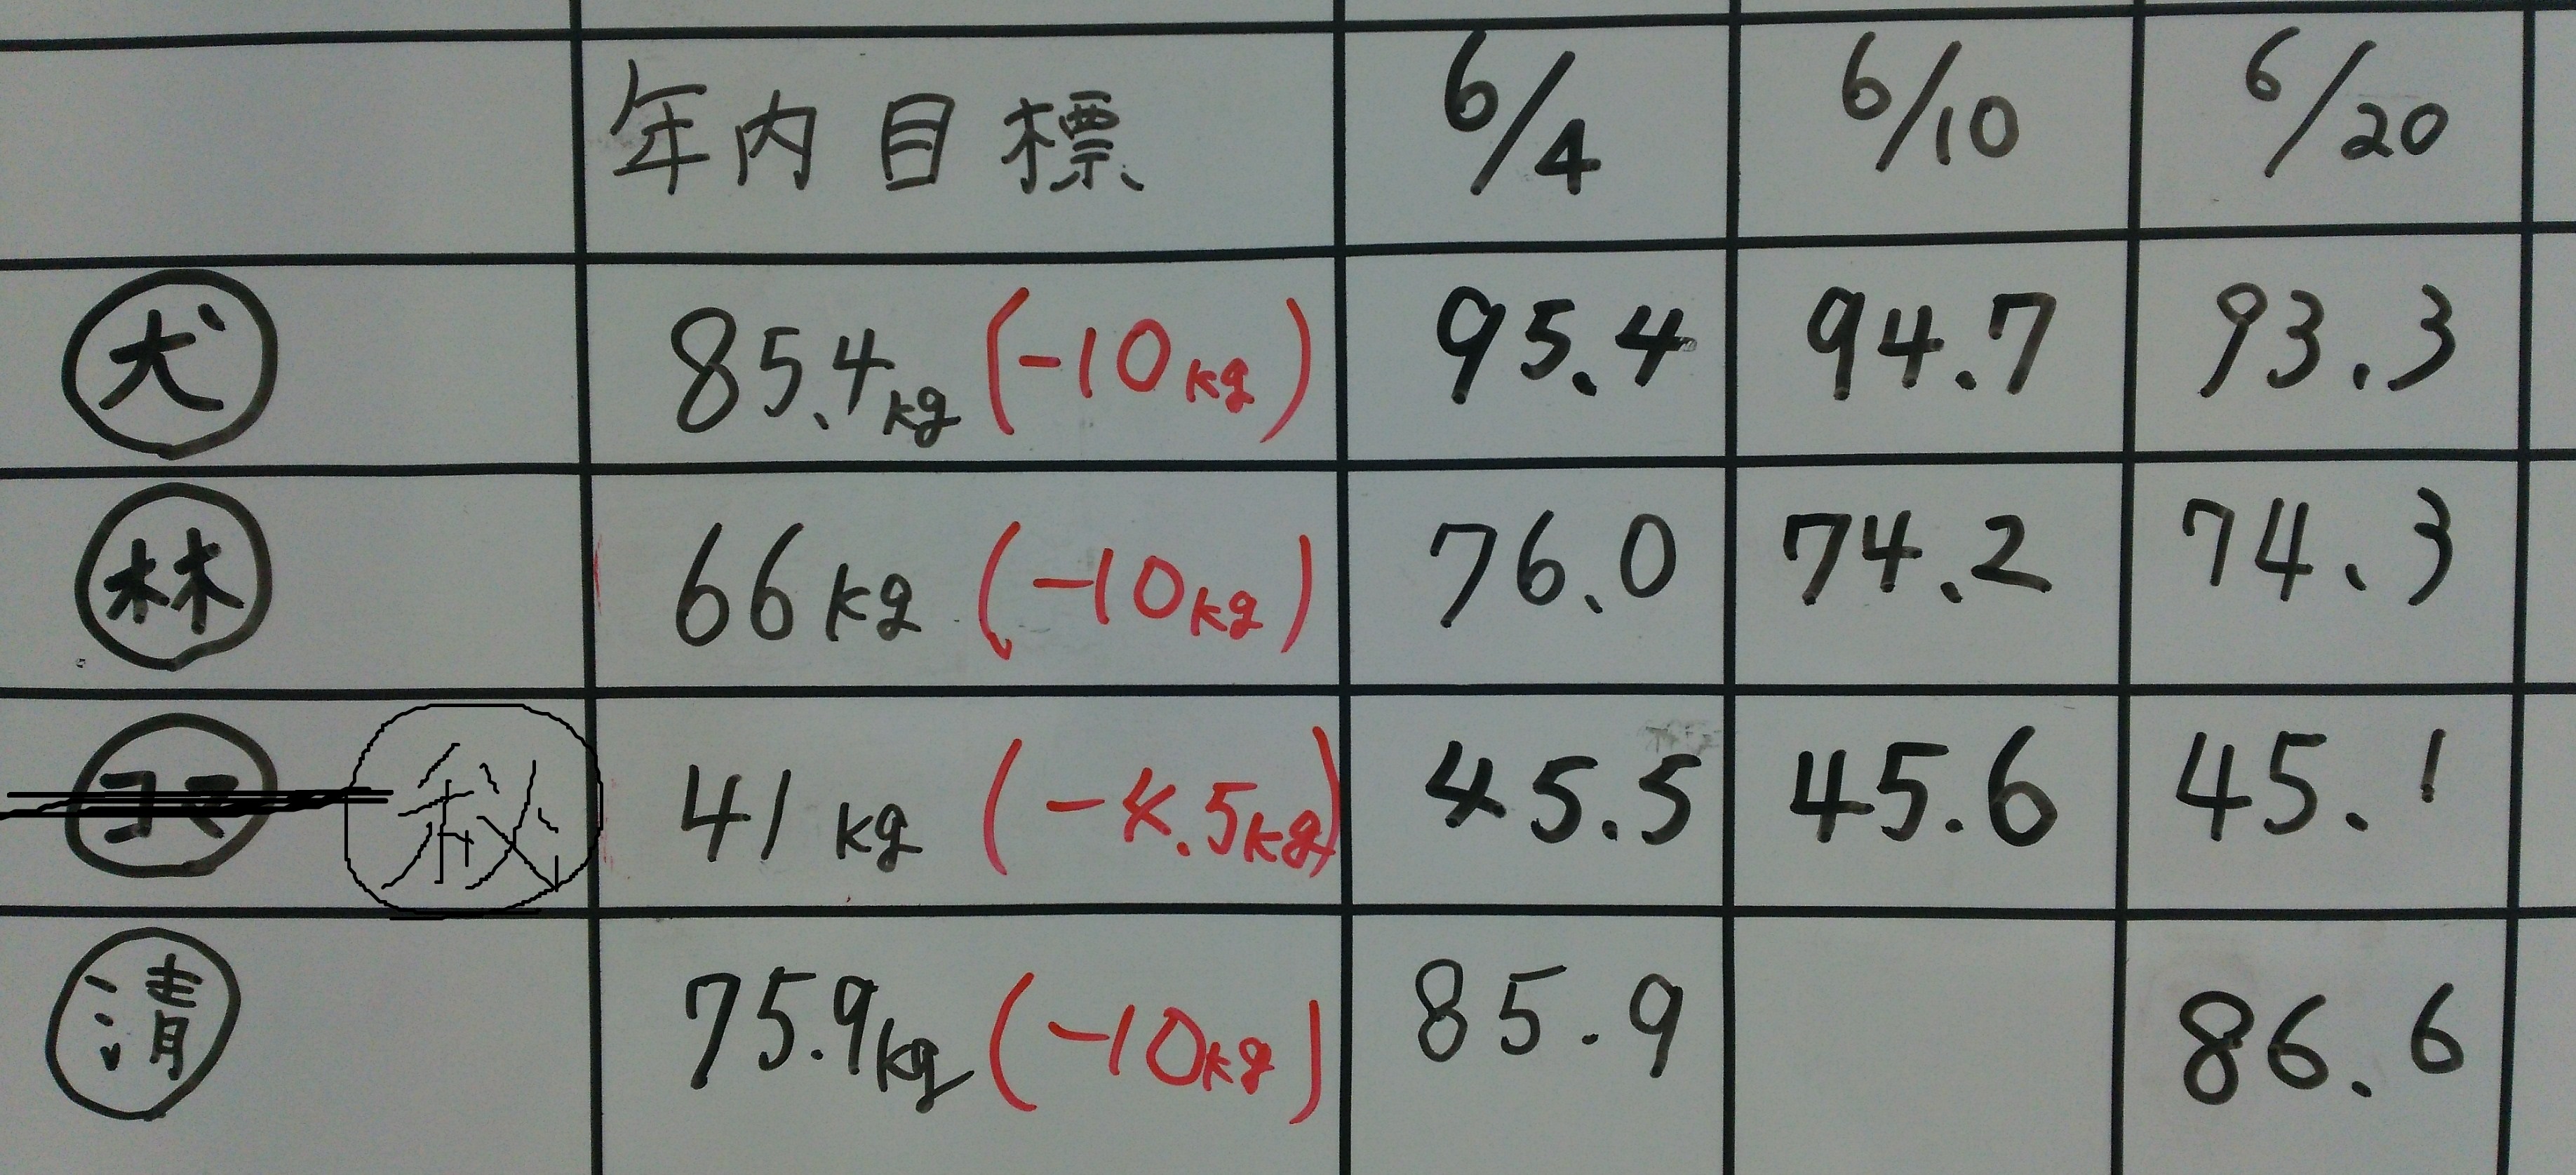 年内目標 6/4 6/10 6/20
犬 85.4kg (-10kg) 95.4 94.7 93.3
林 66kg (-10kg) 76.0 74.2 74.3
41kg (-4.5kg) 45.5 45.6 45.1
清 75.9kg (-10kg) 85.9 86.6